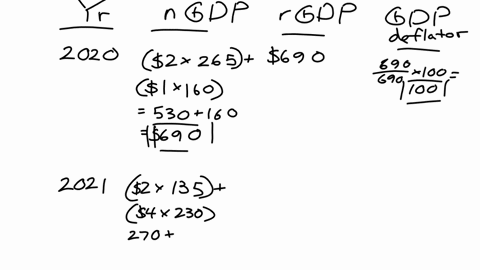 Yr nGDP rGDP GDP deflator
2020 ($2 x 265) + $690 690/690 x 100 =
($1 x 160) 100
= 530 + 160
= $690
2021 ($2 x 135) +
($4 x 230)
270 +